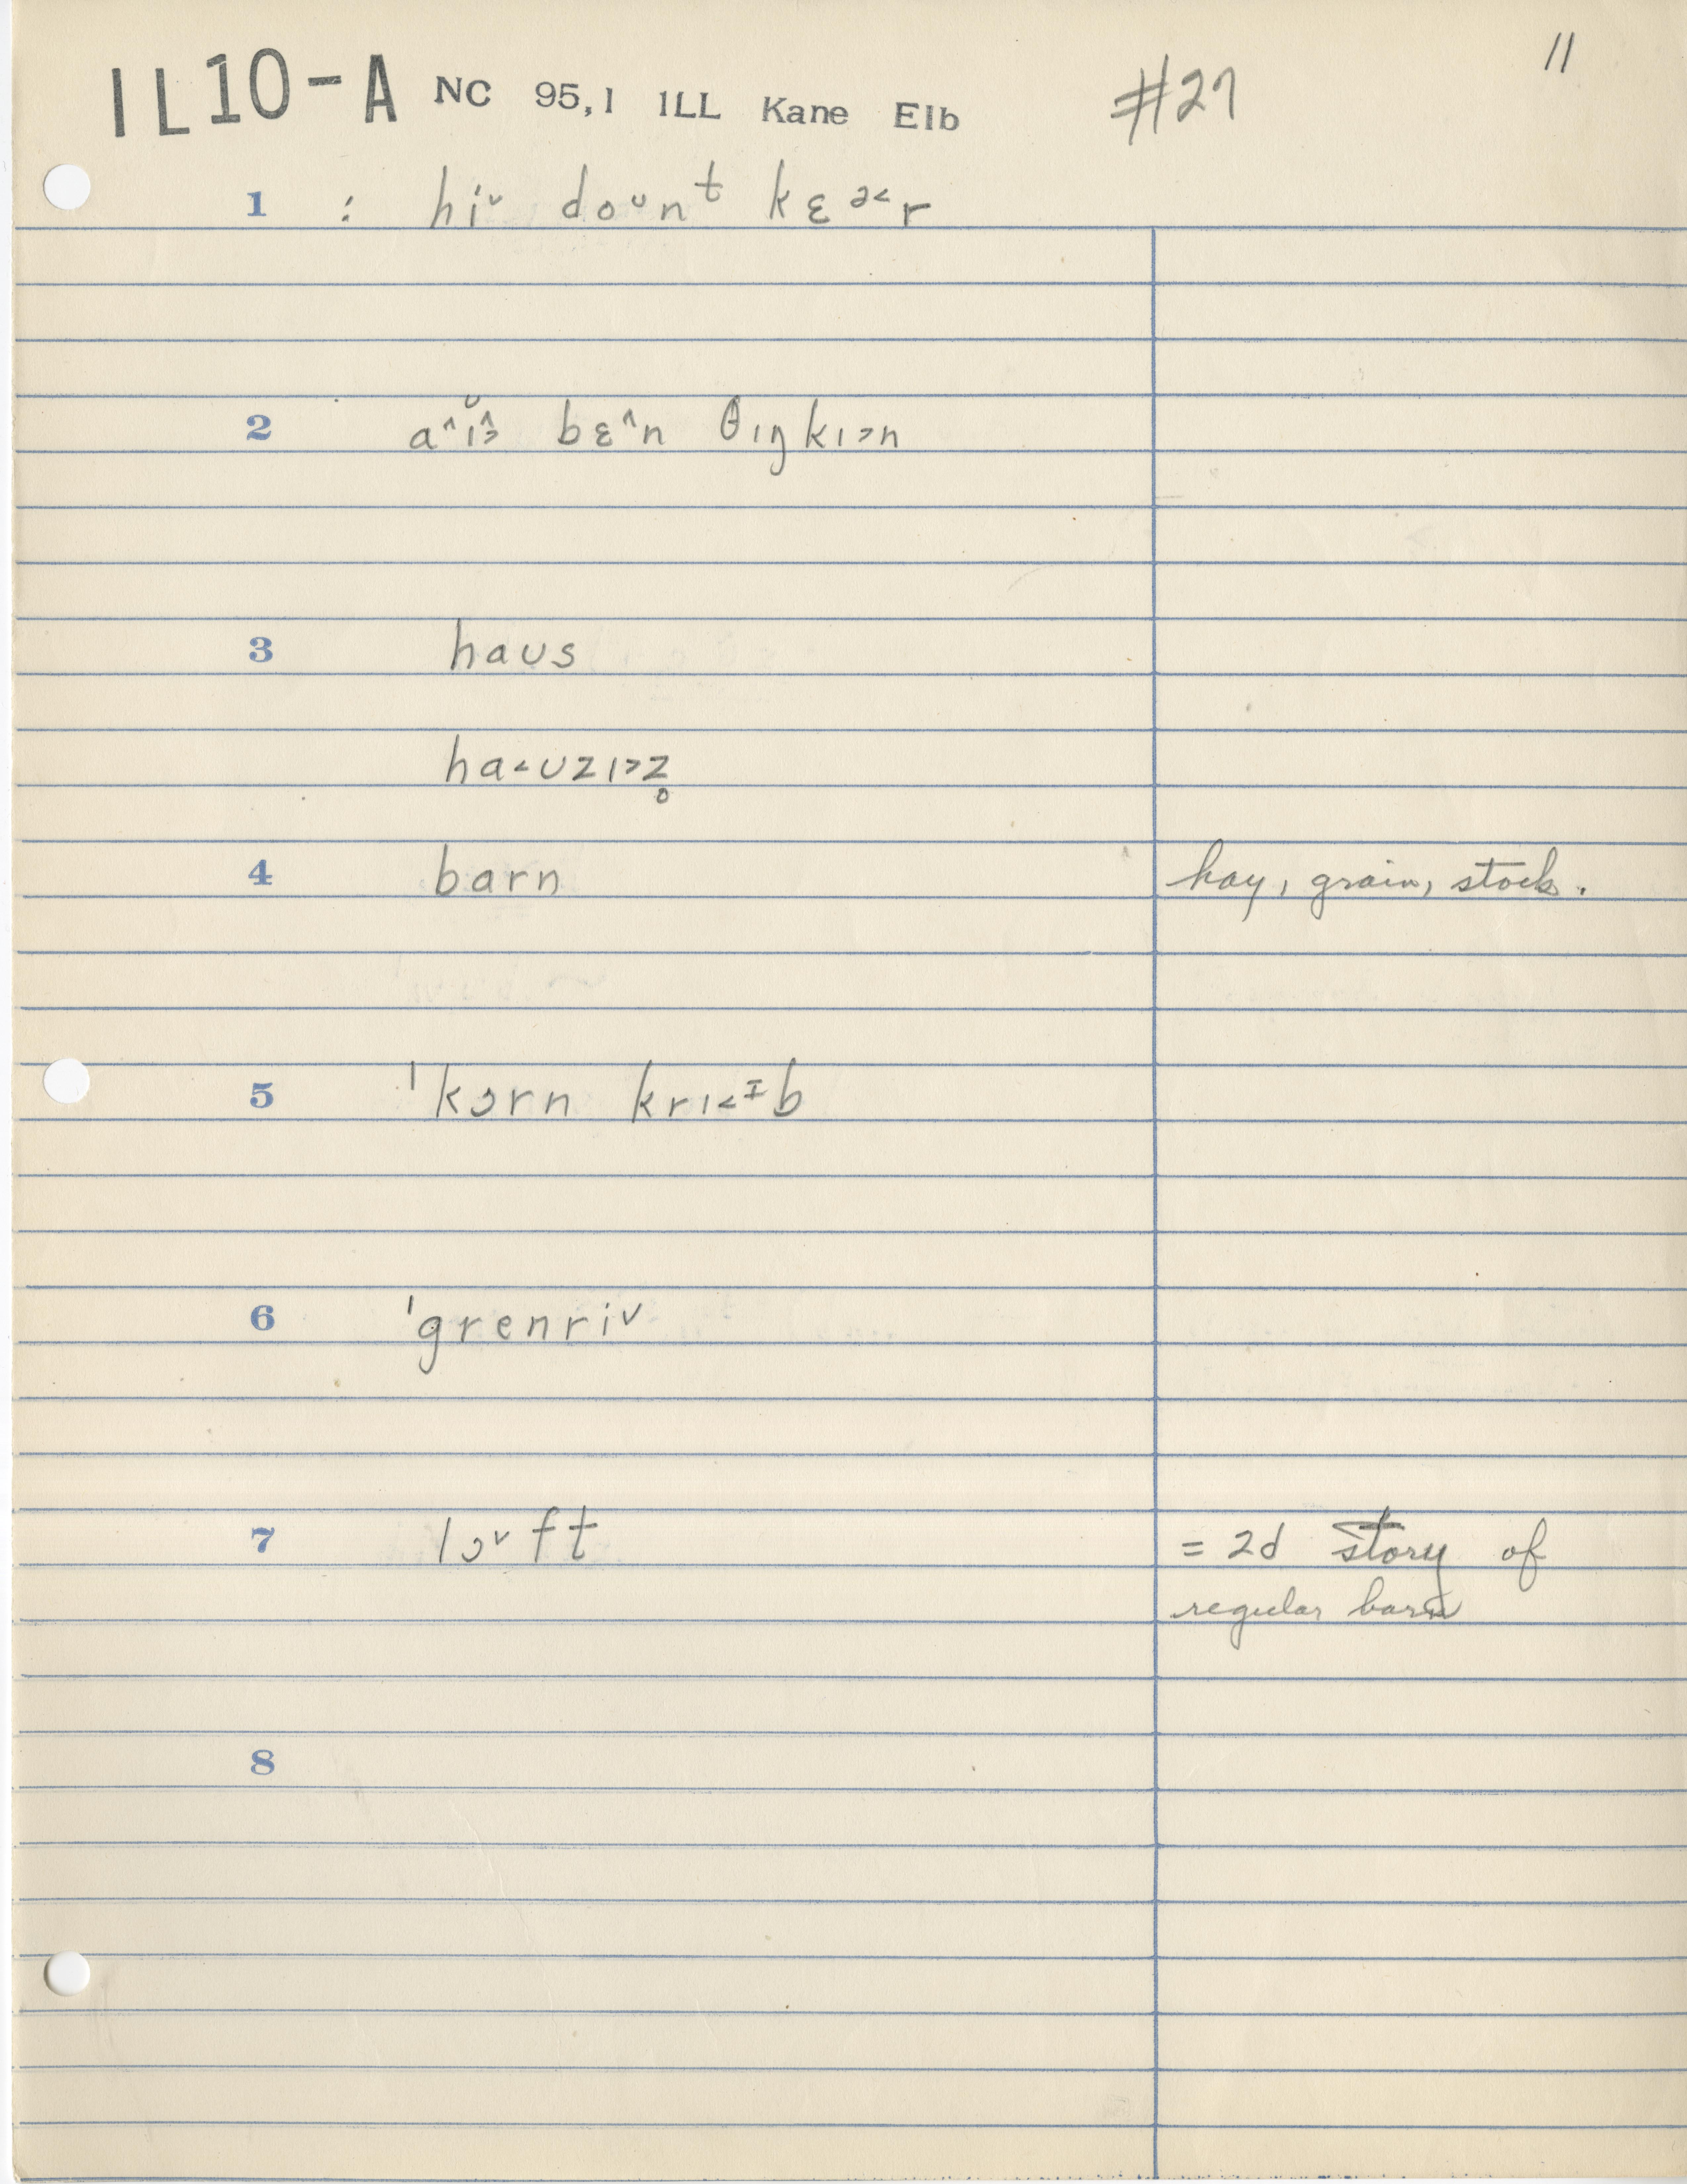 11
IL10-A NC 95,1 ILL Kane Elb #27
1 : hi˅ doᴜnᵗ kɛᵊ˂r
2 a˄ɪ̆˄˃ bɛ˄n θɪŋkɪ˃n
3 haᴜs
ha˂ᴜzɪ˃z̥
4 barn hay, grain, stock.
5 ˈkɔrn krɪ˂ᶦb
6 ˈgrenri˅
7 lɔ˅ft = 2d story of
regular barn
8